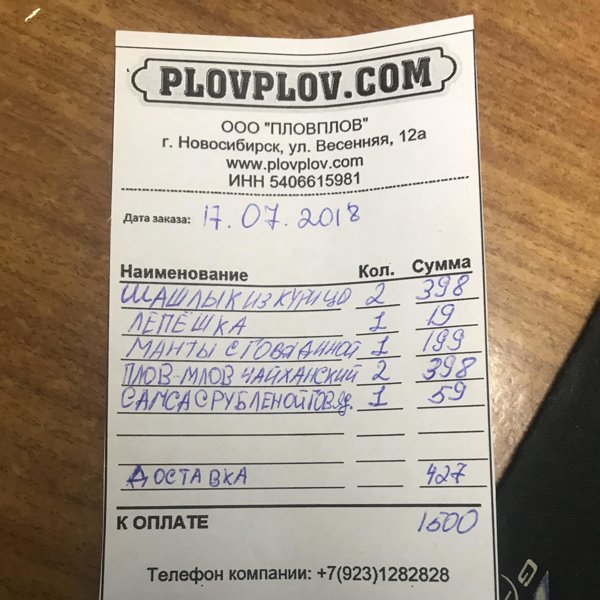 PLOVPLOV.COM
ООО "ПЛОВПЛОВ"
г. Новосибирск, ул. Весенняя, 12а
www.plovplov.com
ИНН 5406615981
Дата заказа: 17.07.2018
Наименование Кол. Сумма
ШАШЛЫК ИЗ КУРИЦЫ 2 398
ЛЕПЁШКА 1 19
МАНТЫ С ГОВЯДИНОЙ 1 199
ПЛОВ-МЛОВ ЧАЙХАНСКИЙ 2 398
САМСА С РУБЛЕНОЙ ГОВЯД. 1 59
ДОСТАВКА 427
К ОПЛАТЕ 1500
Телефон компании: +7(923)1282828